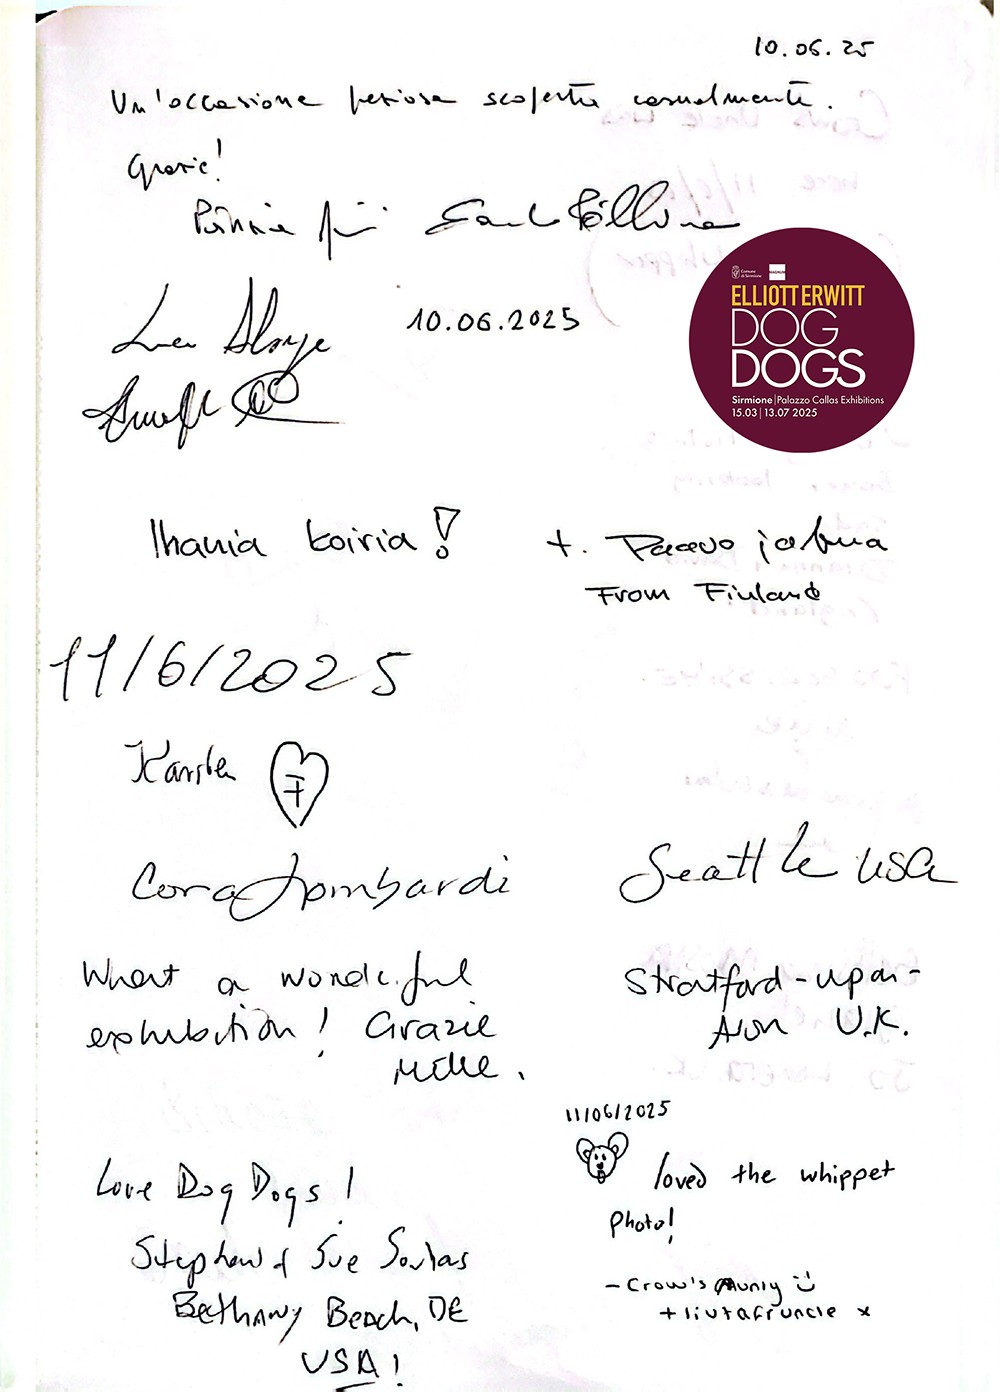 10.06.25
Un'occasione scoperta casualmente.
Grazie!
10.06.2025
Comune di Sirmione
MAGNUM
ELLIOTT ERWITT
DOG
DOGS
Sirmione | Palazzo Callas Exhibitions
15.03 | 13.07 2025
Ihania koiria!
+. Paavo
From Finland
11/6/2025
Karsten
Cora Lombardi
Seattle USA
What a wonderful
exhibition! Grazie
Mille.
Stratford-upon-
Avon U.K.
11/06/2025
loved the whippet
photo!
- Crow's
+
x
Love Dog Dogs!
Stephen & Sue
Bethany Beach, DE
USA!